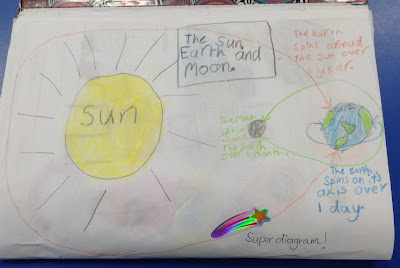 The Sun,
Earth and
Moon.
The Earth
spins around
the sun over
1 year.
Sun
Earth
The Moon
The Earth
over 1 month.
The earth
spins on its
axis over
1 day.
Super diagram!